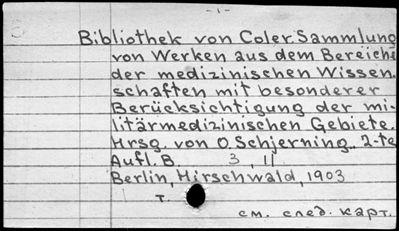 - 1 -
Bibliothek von Coler. Sammlung
von Werken aus dem Bereiche
der medizinischen Wissen.
schaften mit besonderer
Berücksichtigung der mi-
litärmedizinischen Gebiete.
Hrsg. von O. Schjerning. 2-te
Aufl. B. 3, 11
Berlin, Hirschwald, 1903
т.
см. след. карт.